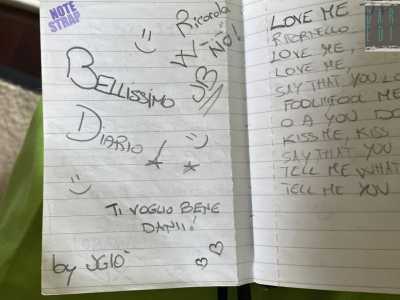 NOTE
STRAP
Ricorda
W JB
NO!
BELLISSIMO
DIARIO!
TI VOGLIO BENE
DANII!
by JGIÒ
LOVE ME
RITORNELLO
LOVE ME,
LOVE ME,
SAY THAT YOU LO
FOOL ME
O A YOU DO
KISS ME, KISS
SAY THAT YOU
TELL ME WHAT
TELL ME YOU